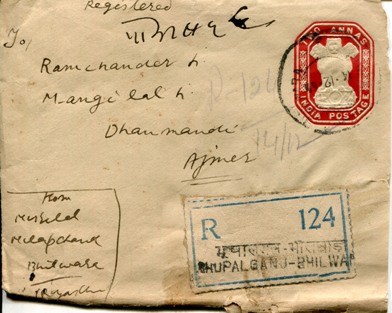 Registered
To,
Ramchander
Mangilal
Dhanmandi
Ajmer
TWO ANNAS
INDIA POSTAGE
14/12
From
Milapchand
Bhilwara
R 124
भूपालगंज-भीलवाड़ा
BHUPALGANJ-BHILWA